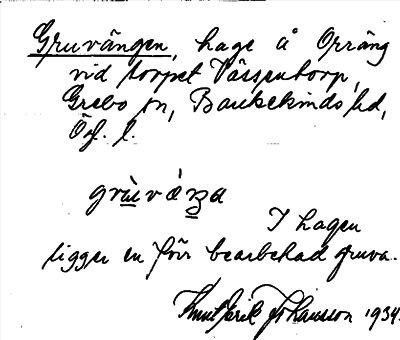 Gruvängen, hage å Orräng
vid torpet Vässentorp,
Grebo sn, Bankekinds hd,
Ög. l.
I hagen
ligger en förr bearbetad gruva.
Knut Erik Johansson 1934.